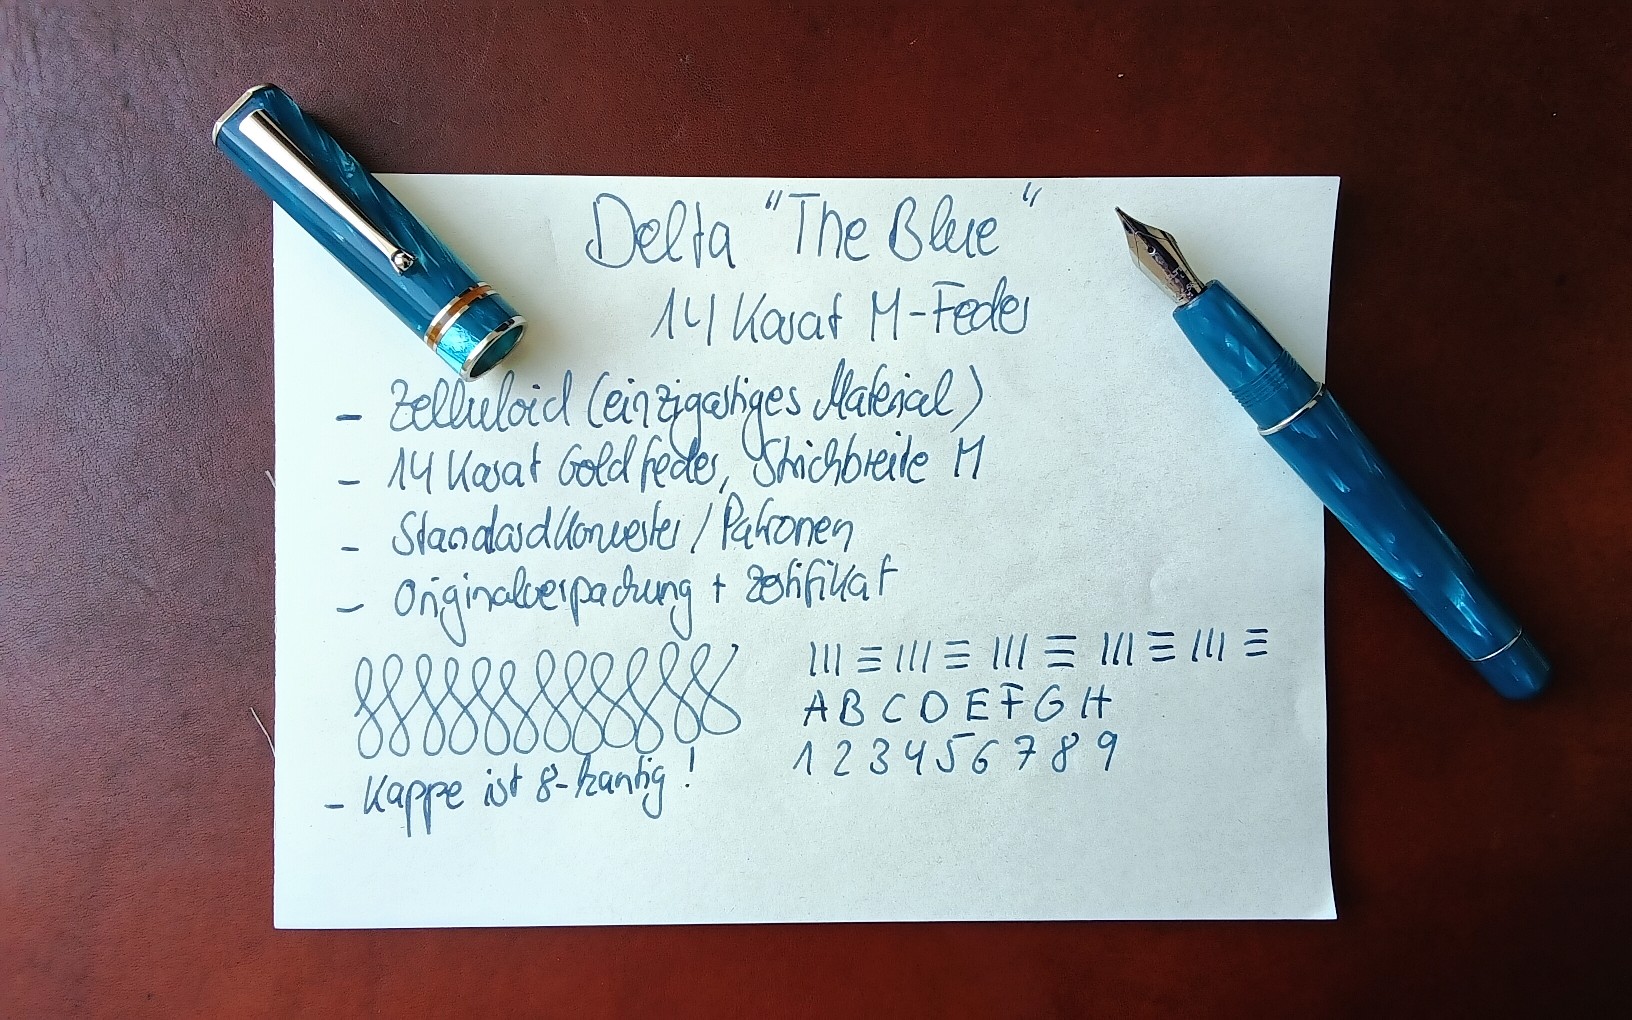 Delta "The Blue"
14 Karat M-Feder
- Zelluloid (einzigartiges Material)
- 14 Karat Goldfeder, Strichbreite M
- Standardkonverter / Patronen
- Originalverpackung + Zertifikat
A B C D E F G H
1 2 3 4 5 6 7 8 9
- Kappe ist 8-kantig!